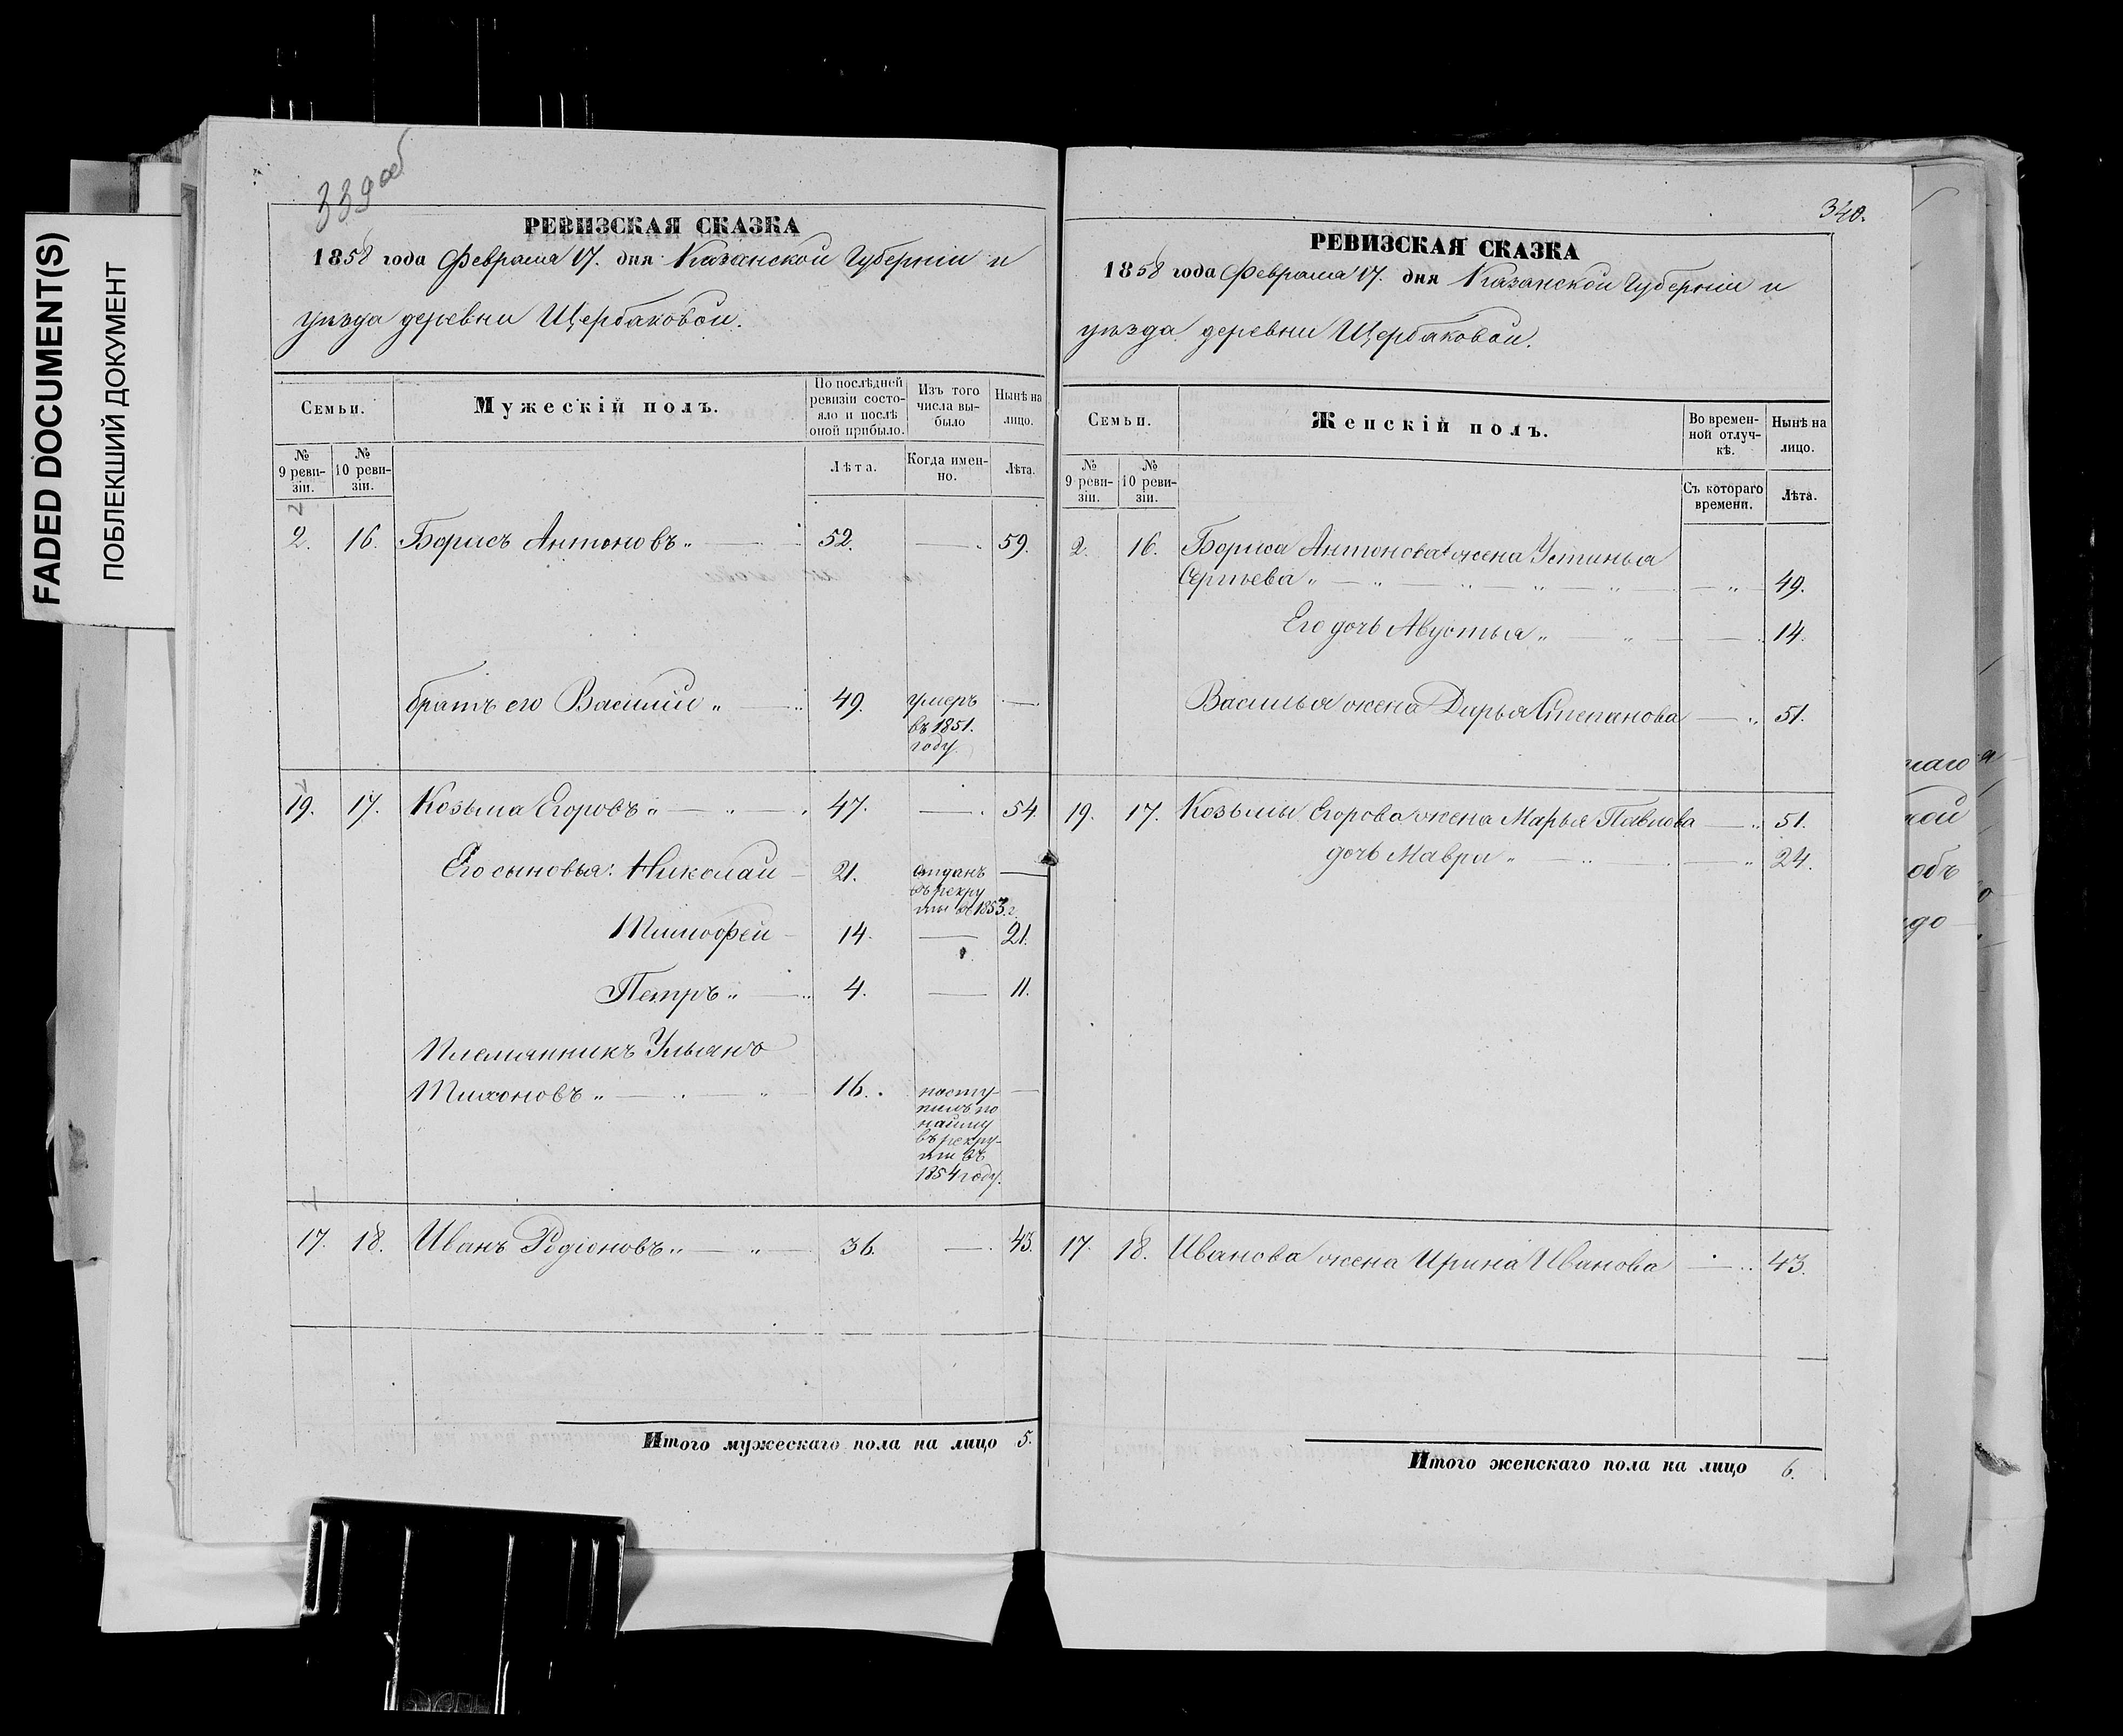 FADED DOCUMENT(S)
ПОБЛЕКШИЙ ДОКУМЕНТ
339об
РЕВИЗСКАЯ СКАЗКА
1858 года Февраля 17. дня Казанской Губерніи и
уѣзда деревни Щербаковой.
Семьи.
Мужескій полъ.
По послѣдней
ревизіи состо-
яло и послѣ
оной прибыло.
Изъ того
числа вы-
было
Нынѣ на
лицо.
№
9 реви-
зіи.
№
10 реви-
зіи.
Лѣта.
Когда имен-
но.
Лѣта.
2. 16. Борисъ Антоновъ 52. — 59.
братъ его Василий 49. умеръ —
въ 1851.
году.
19. 17. Козьма Егоровъ 47. — 54.
Его сыновья: Николай 21. отданъ —
въ рекру
ты въ 1853 г.
Тимофей 14. — 21.
Петръ 4. — 11.
Племянникъ Ульянъ
Тихоновъ 16. посту- —
пилъ по
найму
въ рекру-
ты въ
1854 году.
17. 18. Иванъ Родіоновъ 36. — 43.
Итого мужескаго пола на лицо 5.
340.
РЕВИЗСКАЯ СКАЗКА
1858 года Февраля 17. дня Казанской Губерніи и
уѣзда деревни Щербаковой.
Семьи.
Женскій полъ.
Во времен-
ной отлуч-
кѣ.
Нынѣ на
лицо.
№
9 реви-
зіи.
№
10 реви-
зіи.
Съ котораго
времени.
Лѣта.
2. 16. Бориса Антонова жена Устинья
Сергѣева — 49.
Его дочь Авдотья — 14.
Василья жена Дарья Степанова — 51.
19. 17. Козьмы Егорова жена Марья Павлова — 51.
дочь Мавра — 24.
17. 18. Иванова жена Ирина Иванова — 43.
Итого женскаго пола на лицо 6.